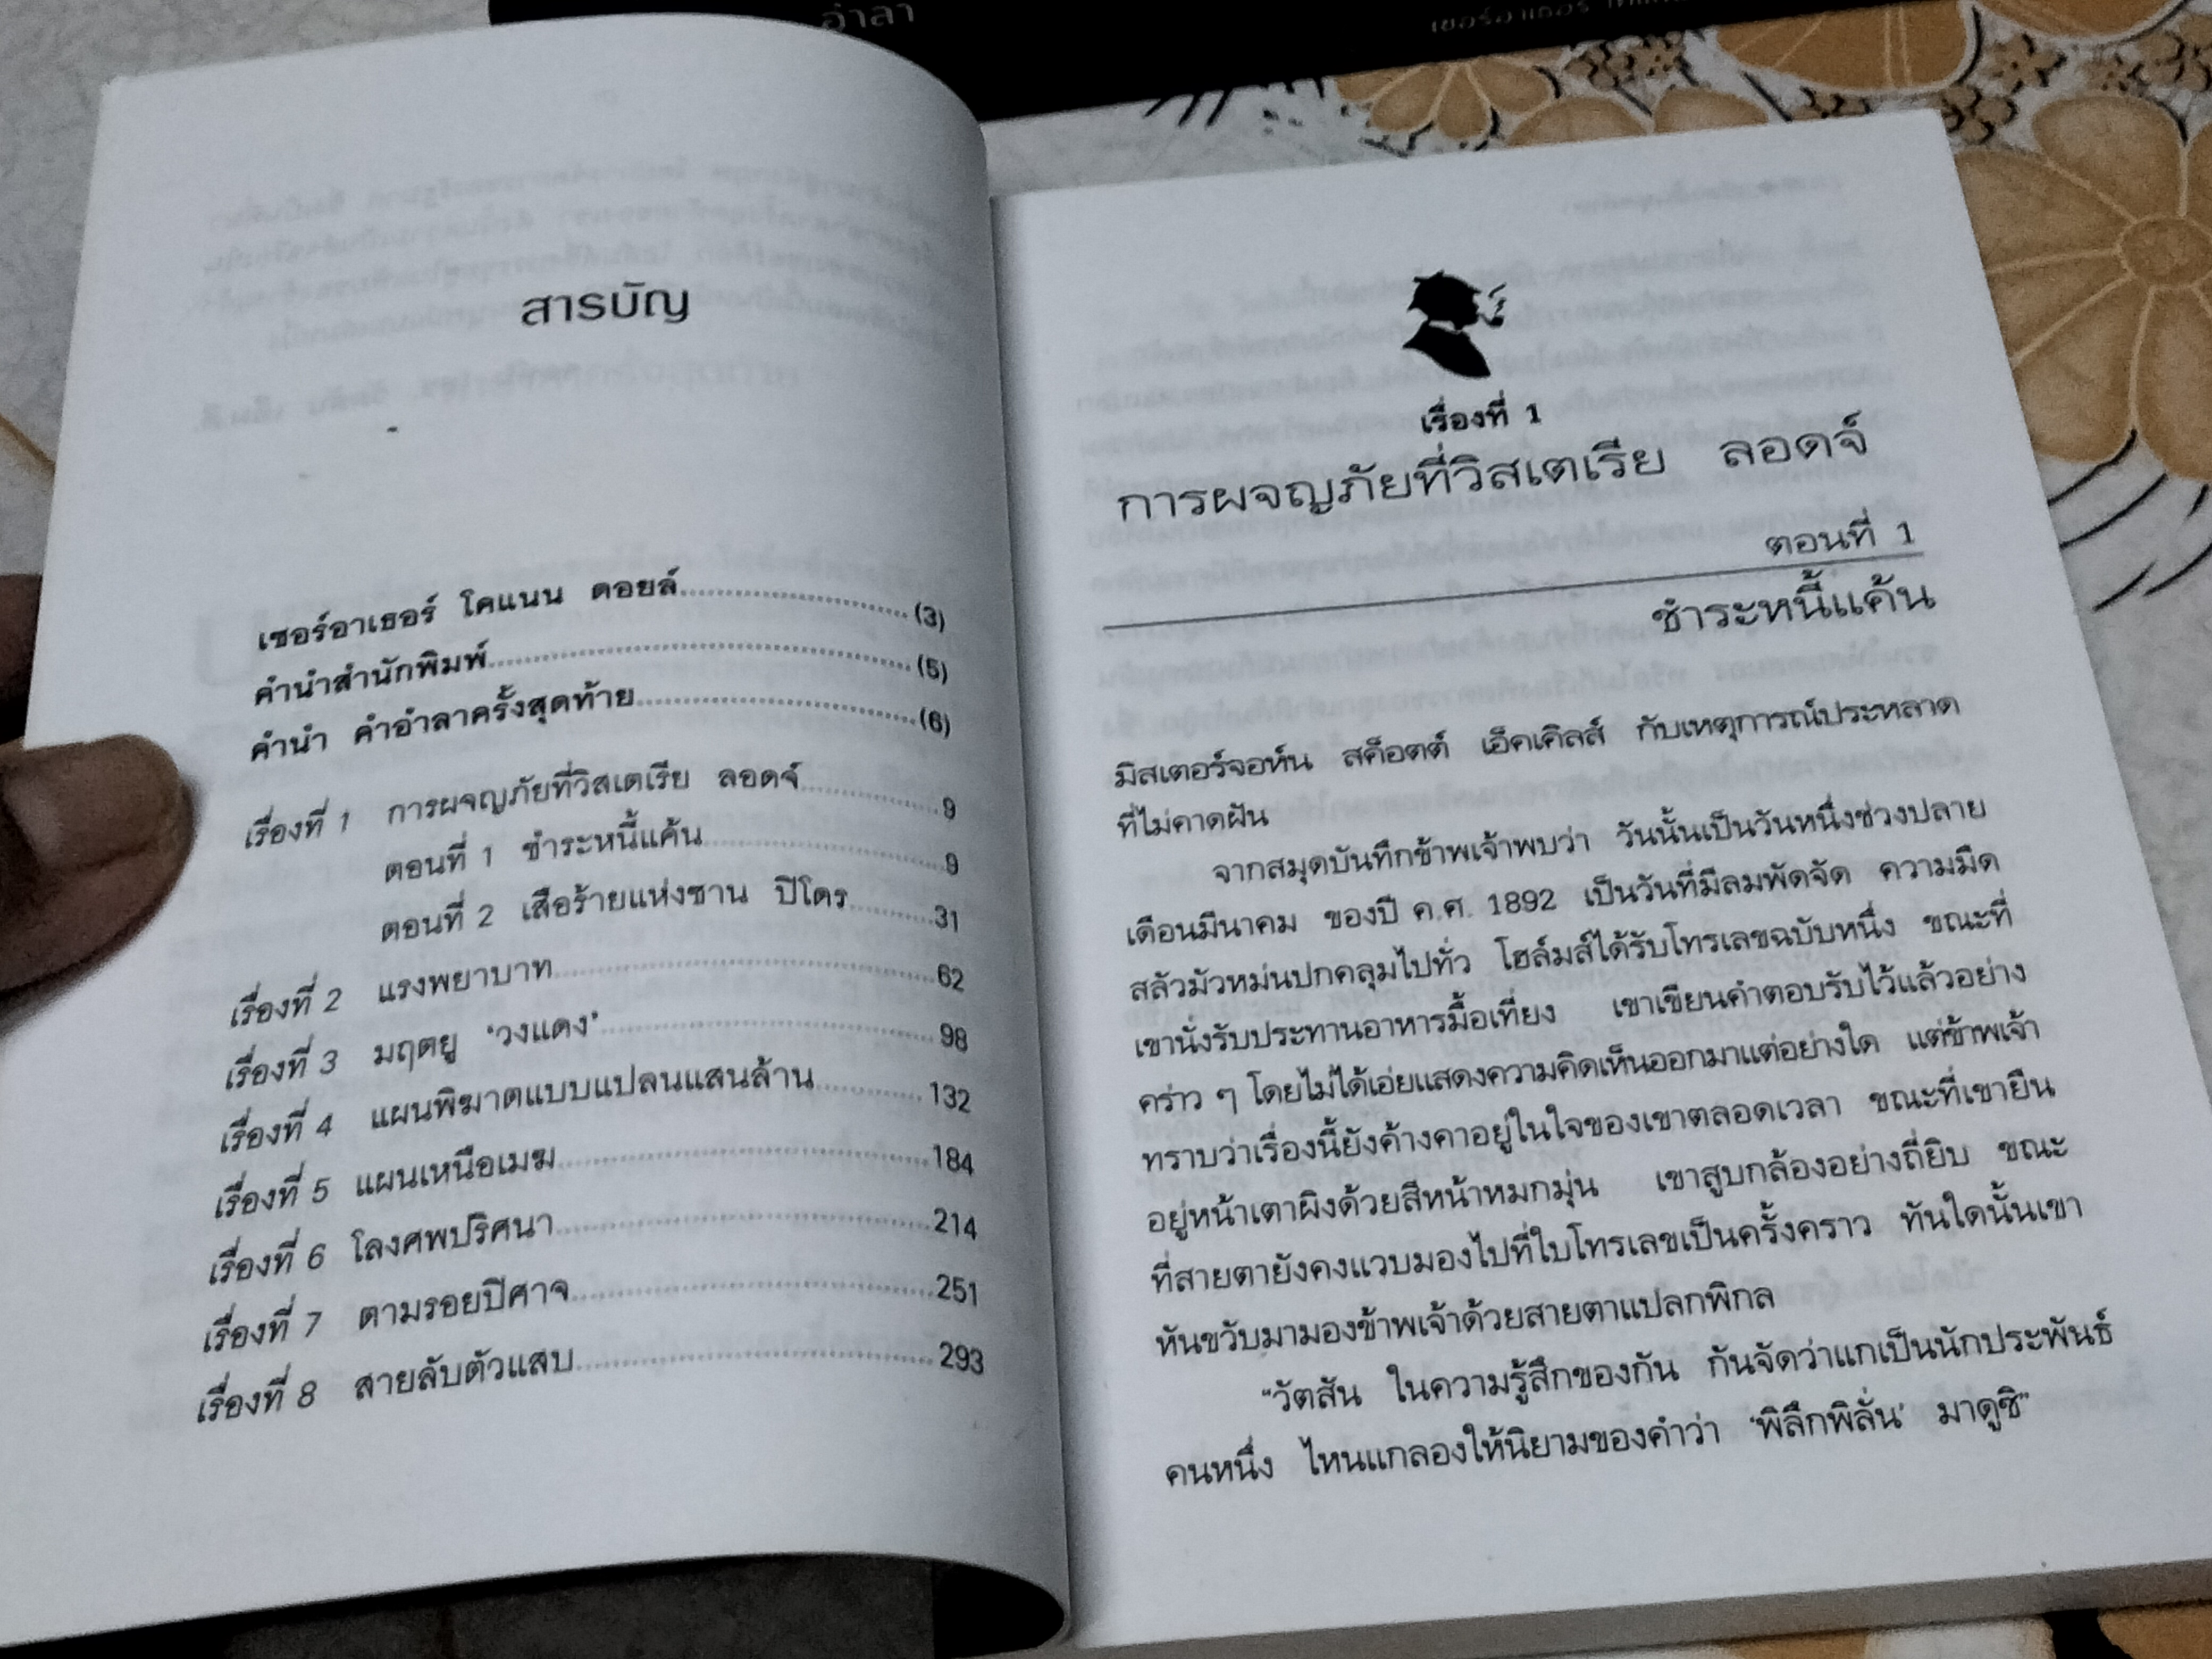 อำลา
เซอร์อาเธอร์
สารบัญ
เซอร์อาเธอร์ โคแนน ดอยล์ (3)
คำนำสำนักพิมพ์ (5)
คำนำ คำอำลาครั้งสุดท้าย (6)
เรื่องที่ 1 การผจญภัยที่วิสเตเรีย ลอดจ์ 9
ตอนที่ 1 ชำระหนี้แค้น 9
ตอนที่ 2 เสือร้ายแห่งซาน ปิโดร 31
เรื่องที่ 2 แรงพยาบาท 62
เรื่องที่ 3 มฤตยู "วงแดง" 98
เรื่องที่ 4 แผนพิฆาตแบบแปลนแสนล้าน 132
เรื่องที่ 5 แผนเหนือเมฆ 184
เรื่องที่ 6 โลงศพปริศนา 214
เรื่องที่ 7 ตามรอยปีศาจ 251
เรื่องที่ 8 สายลับตัวแสบ 293
เรื่องที่ 1
การผจญภัยที่วิสเตเรีย ลอดจ์
ตอนที่ 1
ชำระหนี้แค้น
มิสเตอร์จอห์น สค็อตต์ เอ็คเคิลส์ กับเหตุการณ์ประหลาด
ที่ไม่คาดฝัน
จากสมุดบันทึกข้าพเจ้าพบว่า วันนั้นเป็นวันหนึ่งช่วงปลาย
เดือนมีนาคม ของปี ค.ศ. 1892 เป็นวันที่มีลมพัดจัด ความมืด
สลัวมัวหม่นปกคลุมไปทั่ว โฮล์มส์ได้รับโทรเลขฉบับหนึ่ง ขณะที่
เขานั่งรับประทานอาหารมื้อเที่ยง เขาเขียนคำตอบรับไว้แล้วอย่าง
คร่าว ๆ โดยไม่ได้เอ่ยแสดงความคิดเห็นออกมาแต่อย่างใด แต่ข้าพเจ้า
ทราบว่าเรื่องนี้ยังค้างคาอยู่ในใจของเขาตลอดเวลา ขณะที่เขายืน
อยู่หน้าเตาผิงด้วยสีหน้าหมกมุ่น เขาสูบกล้องอย่างถี่ยิบ ขณะ
ที่สายตายังคงแวบมองไปที่ใบโทรเลขเป็นครั้งคราว ทันใดนั้นเขา
หันขวับมามองข้าพเจ้าด้วยสายตาแปลกพิกล
"วัตสัน ในความรู้สึกของกัน กันจัดว่าแกเป็นนักประพันธ์
คนหนึ่ง ไหนแกลองให้นิยามของคำว่า 'พิลึกพิลั่น' มาดูซิ"